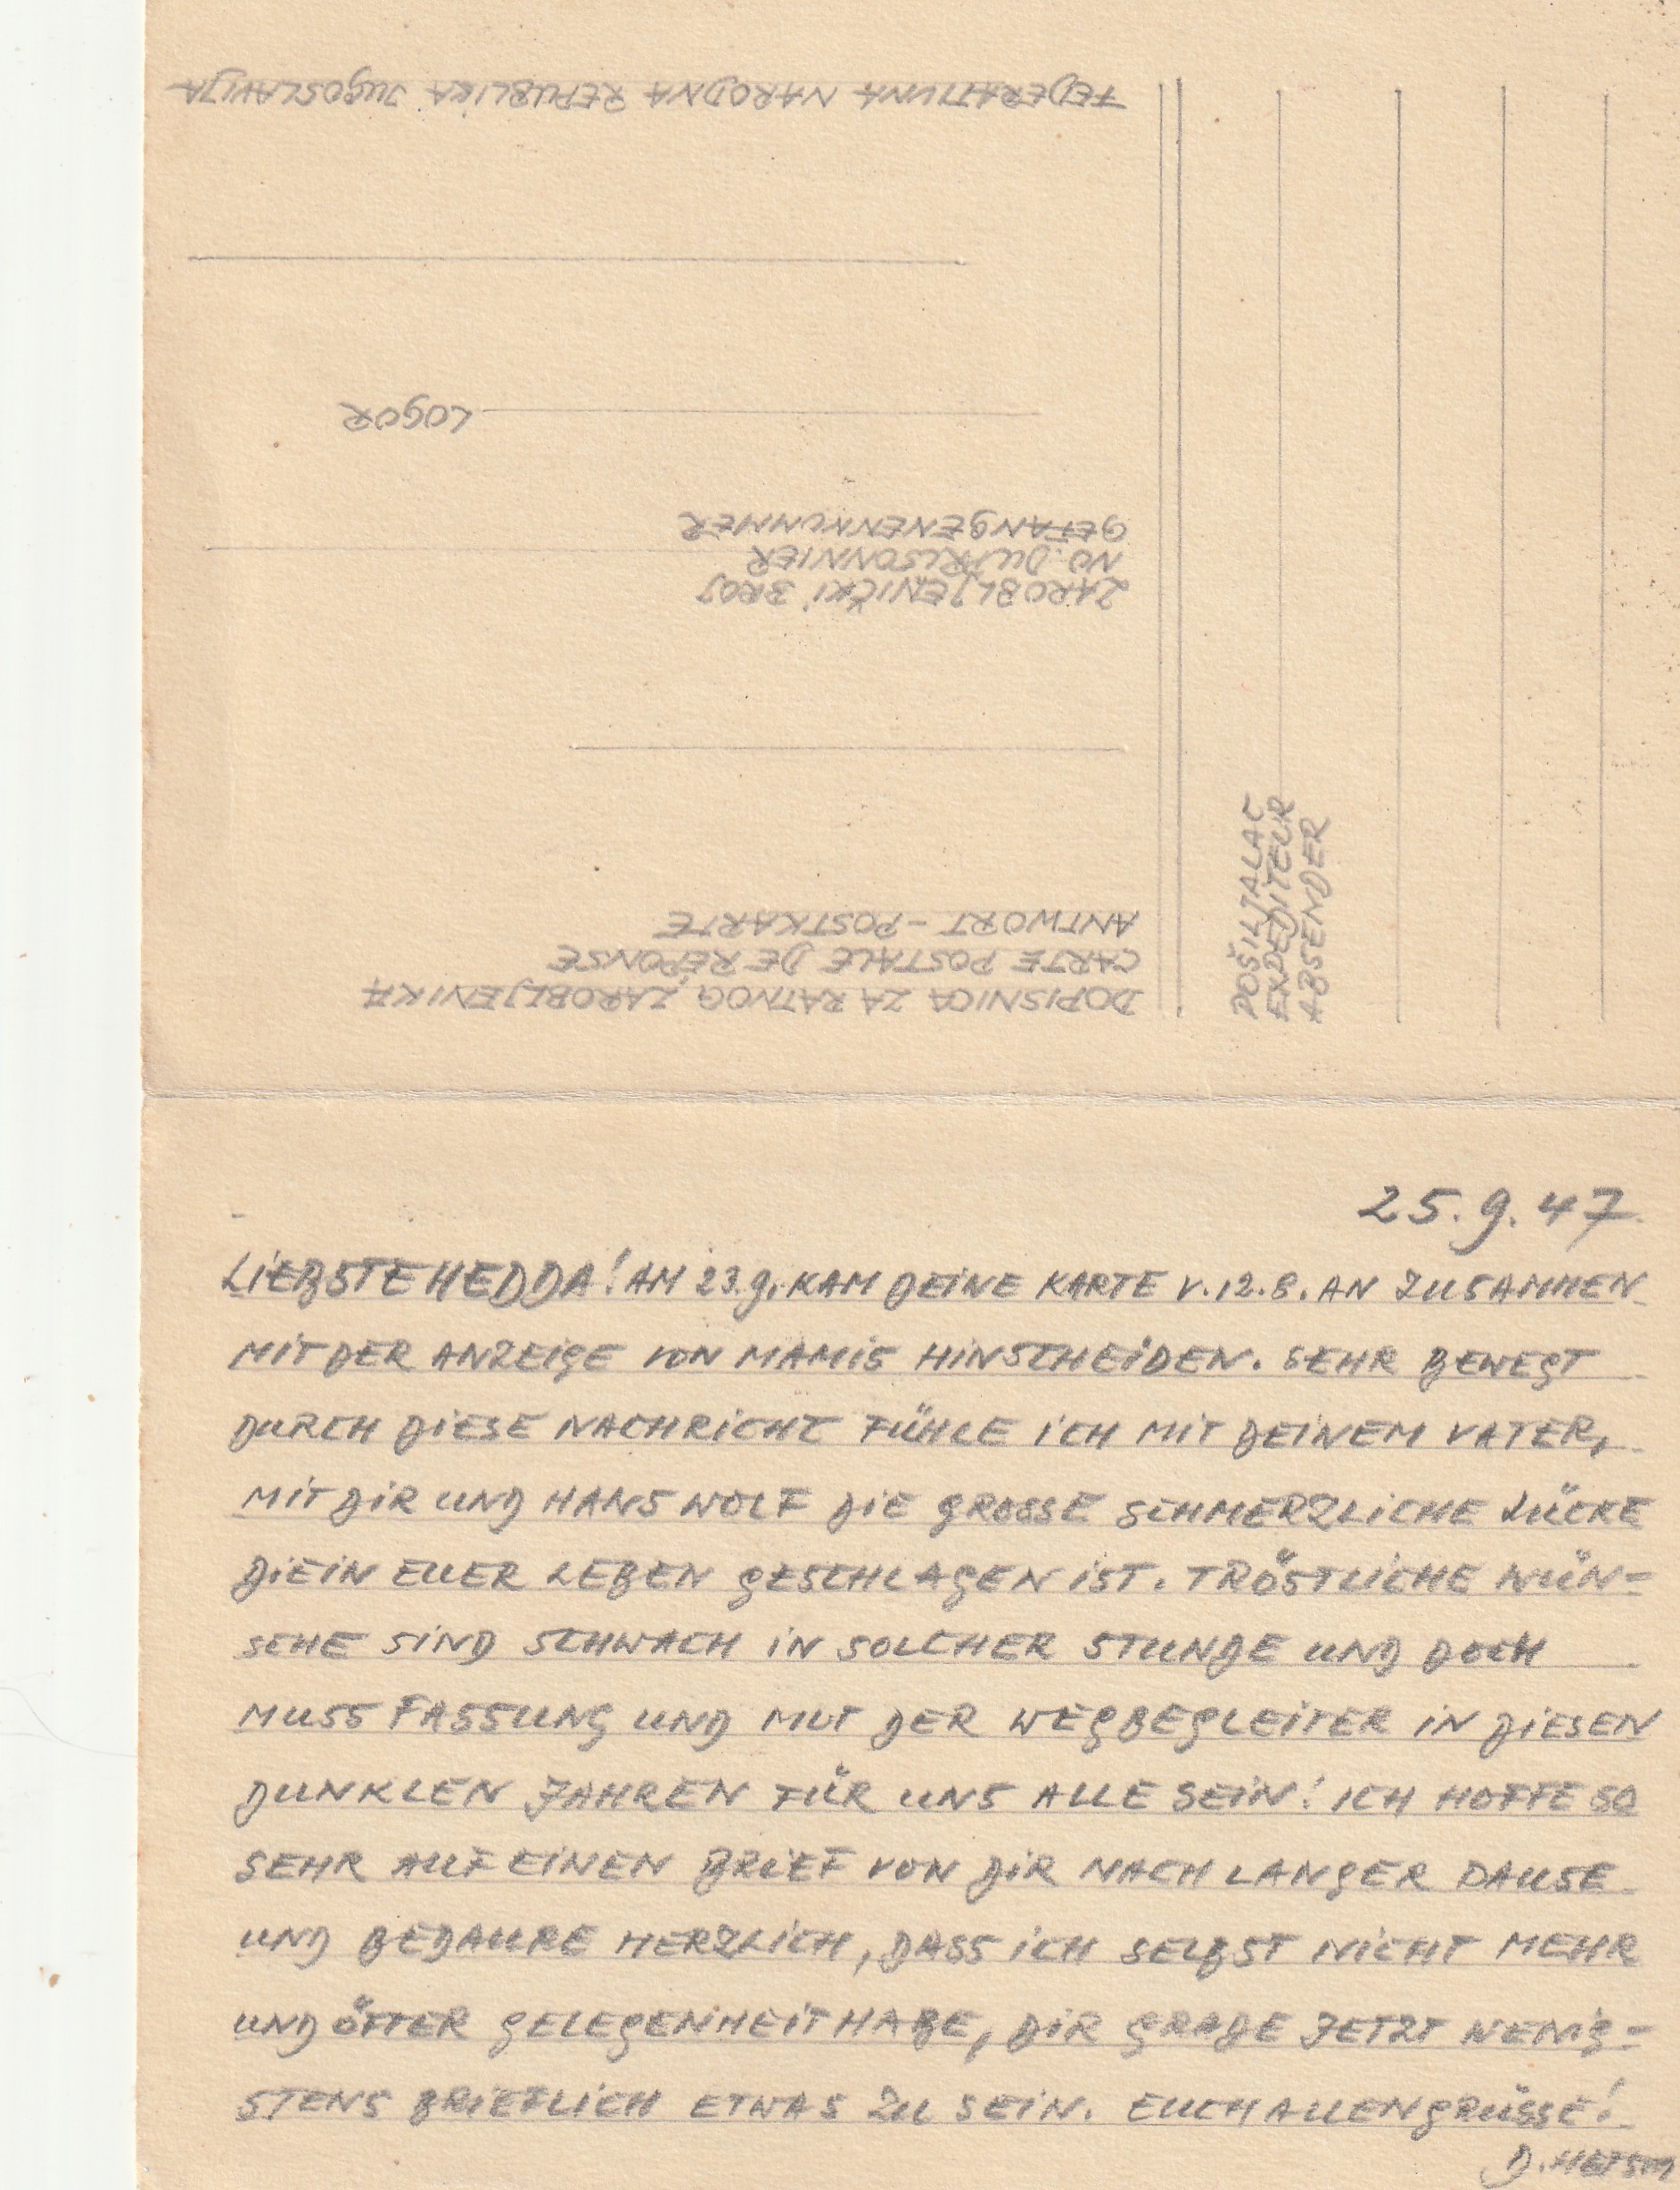 FEDERATIVNA NARODNA REPUBLIKA JUGOSLAVIJA
LOGOR
GEFANGENENNUMMER
NO. DU PRISONNIER
ZAROBLJENIČKI BROJ
ANTWORT-POSTKARTE
CARTE POSTALE DE RÉPONSE
DOPISNICA ZA RATNOG ZAROBLJENIKA
POŠILJALAC
EXPEDITEUR
ABSENDER
25.9.47
LIEBSTE HEDDA! AM 23.9. KAM DEINE KARTE V. 12.8. AN ZUSAMMEN
MIT DER ANZEIGE VON MAMIS HINSCHEIDEN. SEHR BEWEGT
DURCH DIESE NACHRICHT FÜHLE ICH MIT DEINEM VATER,
MIT DIR UND HANS WOLF DIE GROSSE SCHMERZLICHE LÜCKE
DIE IN EUER LEBEN GESCHLAGEN IST. TRÖSTLICHE WÜN=
SCHE SIND SCHWACH IN SOLCHER STUNDE UND DOCH
MUSS FASSUNG UND MUT DER WEGBEGLEITER IN DIESEN
DUNKLEN JAHREN FÜR UNS ALLE SEIN! ICH HOFFE SO
SEHR AUF EINEN BRIEF VON DIR NACH LANGER PAUSE
UND BEDAURE HERZLICH, DASS ICH SELBST NICHT MEHR
UND ÖFTER GELEGENHEIT HABE, DIR GRADE JETZT WENIG=
STENS BRIEFLICH ETWAS ZU SEIN. EUCH ALLEN GRÜSSE!
D.